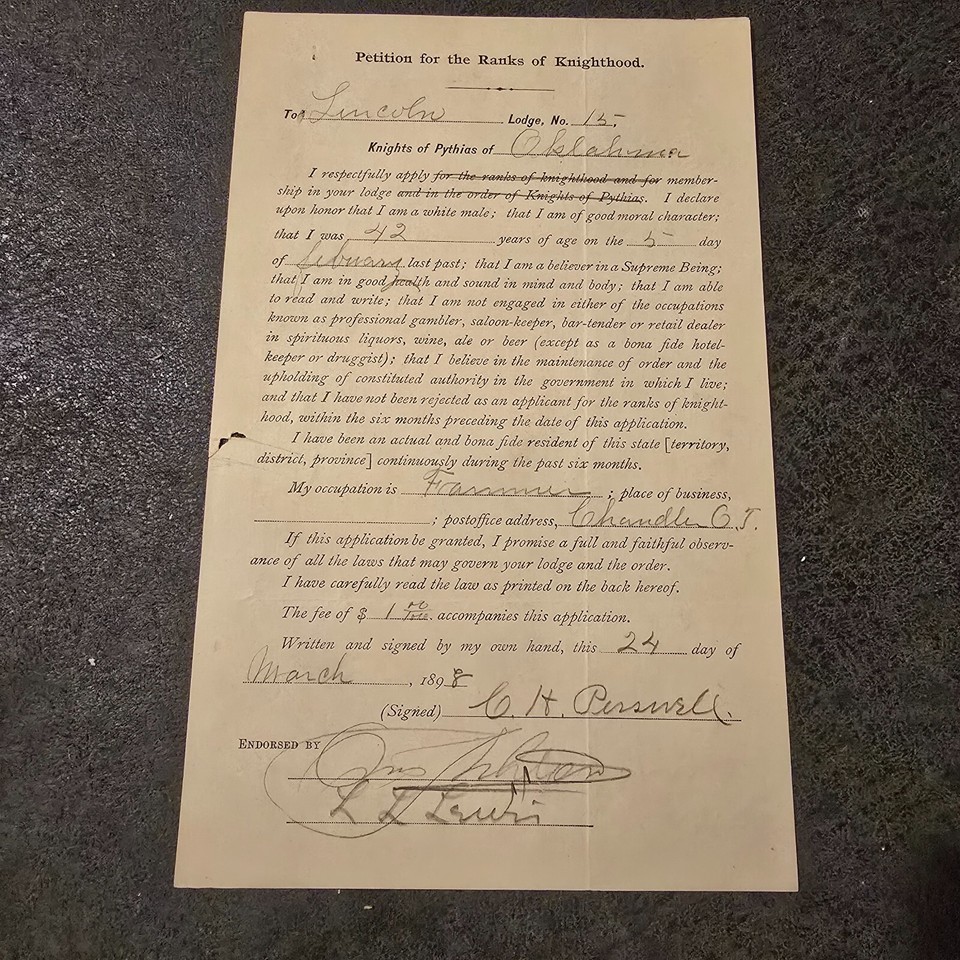 Petition for the Ranks of Knighthood.
To Lincoln Lodge, No. 15,
Knights of Pythias of Oklahoma
I respectfully apply for the ranks of knighthood and for member-
ship in your lodge and in the order of Knights of Pythias. I declare
upon honor that I am a white male; that I am of good moral character;
that I was 42 years of age on the 5 day
of febuary last past; that I am a believer in a Supreme Being;
that I am in good health and sound in mind and body; that I am able
to read and write; that I am not engaged in either of the occupations
known as professional gambler, saloon-keeper, bar-tender or retail dealer
in spirituous liquors, wine, ale or beer (except as a bona fide hotel-
keeper or druggist); that I believe in the maintenance of order and the
upholding of constituted authority in the government in which I live;
and that I have not been rejected as an applicant for the ranks of knight-
hood, within the six months preceding the date of this application.
I have been an actual and bona fide resident of this state [territory,
district, province] continuously during the past six months.
My occupation is Farmmer; place of business,
; postoffice address, Chandler O.T.
If this application be granted, I promise a full and faithful observ-
ance of all the laws that may govern your lodge and the order.
I have carefully read the law as printed on the back hereof.
The fee of $ 1 00/100. accompanies this application.
Written and signed by my own hand, this 24 day of
March, 1898
(Signed) C. H. Perswell.
ENDORSED BY
L L Lewis